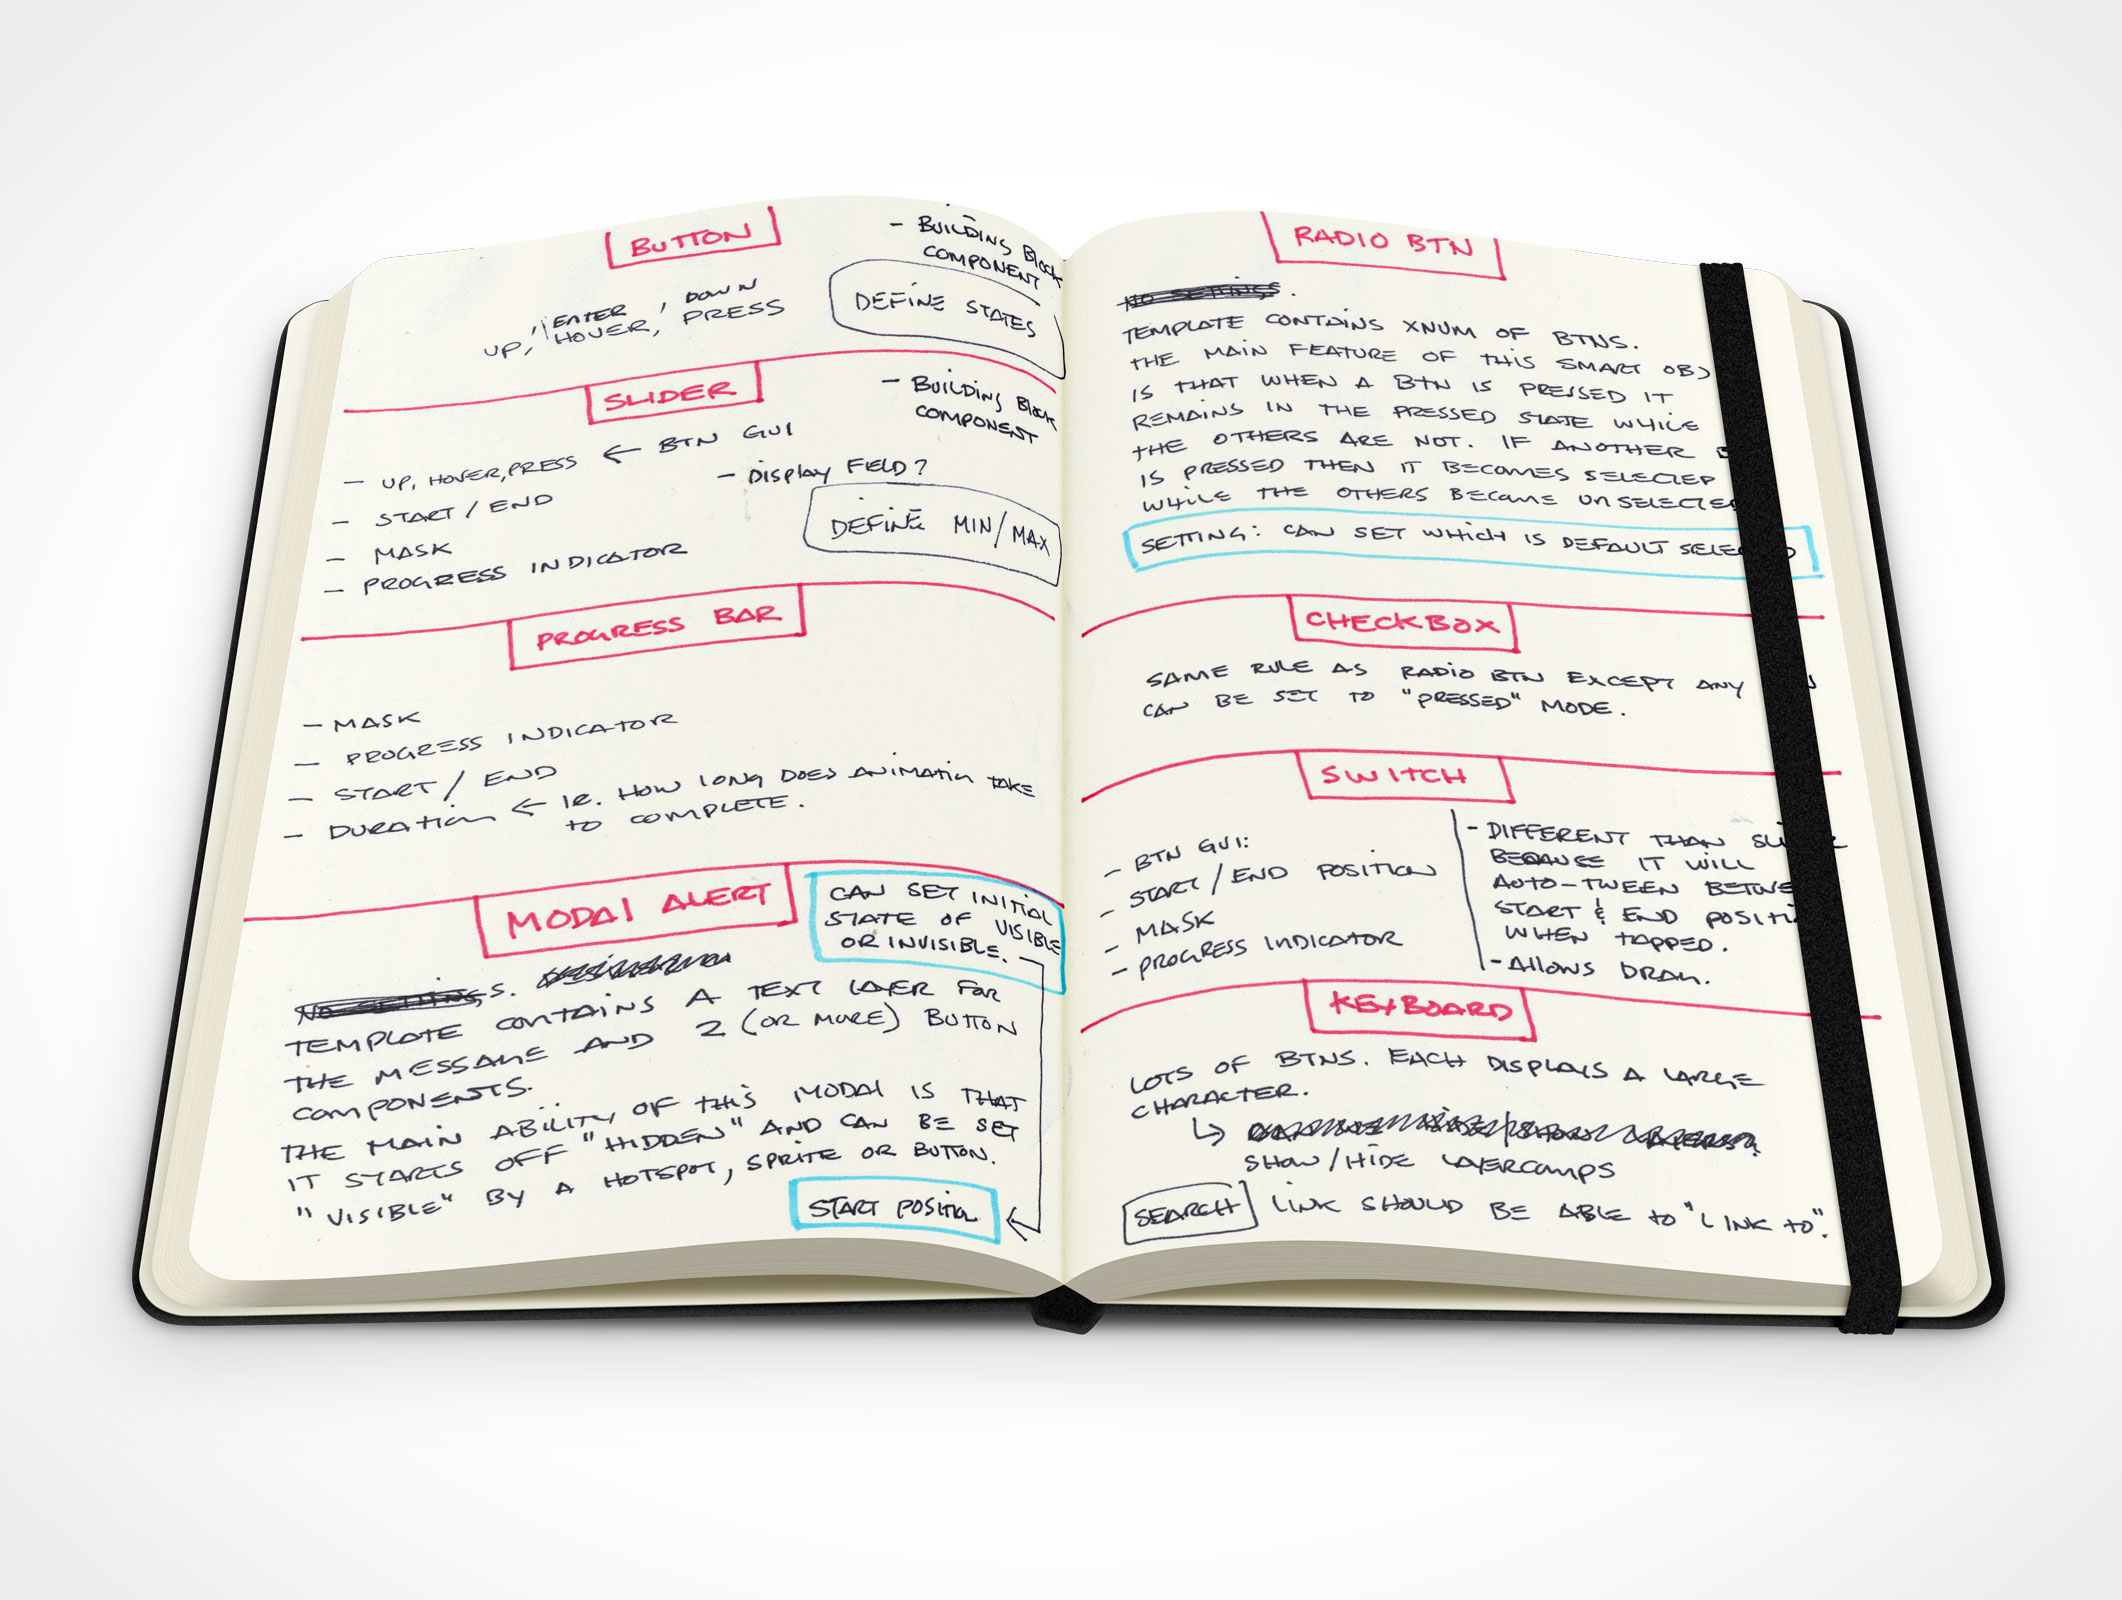 BUTTON
- BUILDING BLOCK
COMPONENT
DEFINE STATES
ENTER , DOWN
UP, HOVER, PRESS
SLIDER
- BUILDING BLOCK
COMPONENT
- UP, HOVER, PRESS ← BTN GUI
- DISPLAY FIELD?
- START / END
DEFINE MIN/MAX
- MASK
- PROGRESS INDICATOR
PROGRESS BAR
- MASK
- PROGRESS INDICATOR
- START / END
- DURATION ← IE. HOW LONG DOES ANIMATION TAKE
TO COMPLETE.
MODAL ALERT
CAN SET INITIAL
STATE OF VISIBLE
OR INVISIBLE.
NO SETTINGS.
TEMPLATE CONTAINS A TEXT LAYER FOR
THE MESSAGE AND 2 (OR MORE) BUTTON
COMPONENTS.
THE MAIN ABILITY OF THIS MODAL IS THAT
IT STARTS OFF "HIDDEN" AND CAN BE SET
"VISIBLE" BY A HOTSPOT, SPRITE OR BUTTON.
START POSITION
RADIO BTN
NO SETTINGS.
TEMPLATE CONTAINS XNUM OF BTNS.
THE MAIN FEATURE OF THIS SMART OBJ
IS THAT WHEN A BTN IS PRESSED IT
REMAINS IN THE PRESSED STATE WHILE
THE OTHERS ARE NOT. IF ANOTHER B
IS PRESSED THEN IT BECOMES SELECTED
WHILE THE OTHERS BECOME UNSELECTED
SETTING: CAN SET WHICH IS DEFAULT SELECTED
CHECKBOX
SAME RULE AS RADIO BTN EXCEPT ANY
CAN BE SET TO "PRESSED" MODE.
SWITCH
- BTN GUI:
- START / END POSITION
- MASK
- PROGRESS INDICATOR
- DIFFERENT THAN SLIDER
BECAUSE IT WILL
AUTO-TWEEN BETWEEN
START & END POSITION
WHEN TAPPED.
- ALLOWS DRAG.
KEYBOARD
LOTS OF BTNS. EACH DISPLAYS A LARGE
CHARACTER.
↳ SHOW/HIDE LAYERCOMPS
SEARCH LINK SHOULD BE ABLE TO "LINK TO".